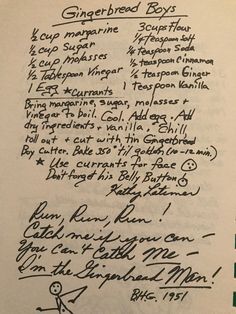 Gingerbread Boys
½ cup margarine 3 cups flour
½ cup sugar ¼ teaspoon salt
½ cup molasses ½ teaspoon soda
½ Tablespoon Vinegar ½ teaspoon cinnamon
1 Egg ½ teaspoon Ginger
* currants 1 teaspoon Vanilla
Bring margarine, sugar, molasses +
Vinegar to boil. Cool. Add egg. Add
dry ingredients + vanilla. Chill,
roll out + cut with tin Gingerbread
Boy Cutter. Bake 350° til golden (10-12 min.)
* Use currants for face
Don't forget his Belly Button!
Kathy
Run, Run, Run!
Catch me if you can —
You can't Catch Me —
I'm the Gingerbread Man!
BHG. 1951